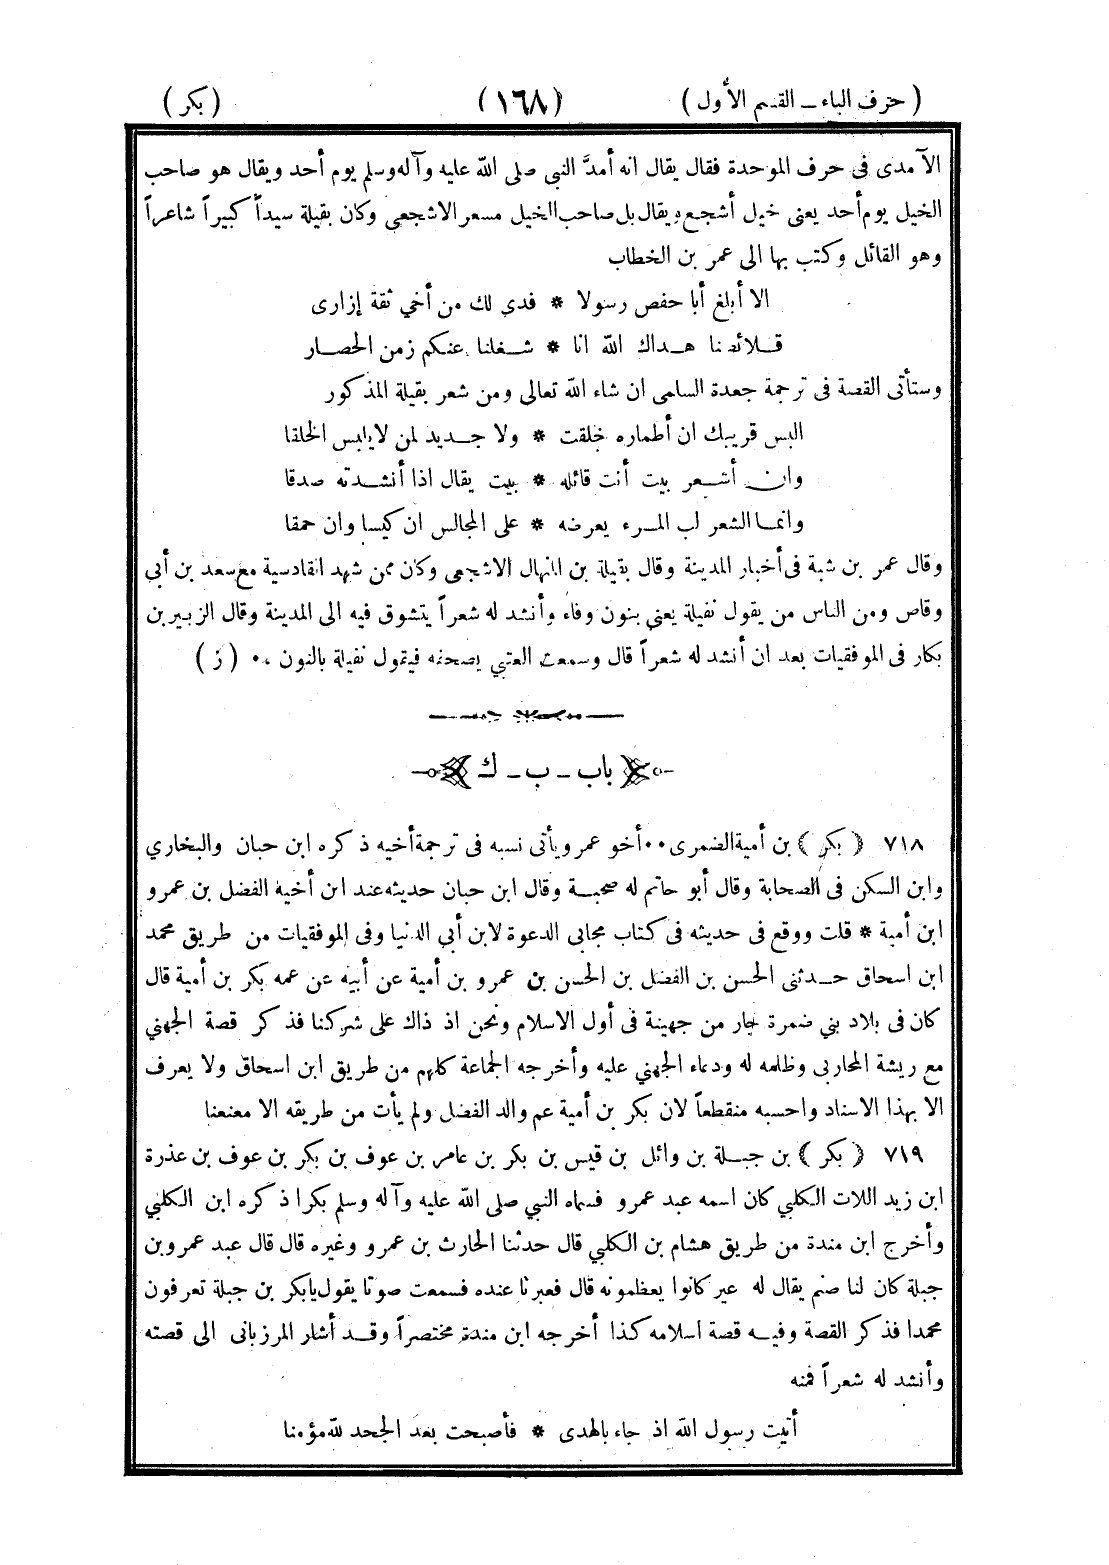 ( حرف الباء ــ القسم الأول ) (١٦٨) ( بكر )
الآمدى فى حرف الموحدة فقال يقال انه أمدَّ النبى صلى الله عليه وآله وسلم يوم أحد ويقال هو صاحب
الخيل يوم أحد يعنى خيل أشجع ويقال بل صاحب الخيل مسعر الاشجعى وكان بقيلة سيداً كبيراً شاعراً
وهو القائل وكتب بها الى عمر بن الخطاب
الا أبلغ أبا حفص رسولا * فدى لك من أخي ثقة إزارى
قلائصنا هداك الله انا * شغلنا عنكم زمن الحصار
وستأتى القصة فى ترجمة جعدة السلمى ان شاء الله تعالى ومن شعر بقيلة المذكور
البس قريبك ان أطماره خلقت * ولا جديد لمن لا يلبس الخلقا
وان أشعر بيت أنت قائله * بيت يقال اذا أنشدته صدقا
وانما الشعر لب المرء يعرضه * على المجالس ان كيسا وان حمقا
وقال عمر بن شبة فى أخبار المدينة وقال بقيلة بن المنهال الاشجعى وكان ممن شهد القادسية مع سعد بن أبي
وقاص ومن الناس من يقول نفيلة يعني بنون وفاء وأنشد له شعراً يتشوق فيه الى المدينة وقال الزبير بن
بكار فى الموفقيات بعد ان أنشد له شعراً قال وسمعت العتبي يصحفه فيقول نفيلة بالنون ٠٠ ( ز )
باب ـ ب ـ ك
٧١٨ ( بكر ) بن أمية الضمرى ٠٠ أخو عمرو يأتى نسبه فى ترجمة أخيه ذكره ابن حبان والبخاري
وابن السكن فى الصحابة وقال أبو حاتم له صحبة وقال ابن حبان حديثه عند ابن أخيه الفضل بن عمرو
ابن أمية * قلت ووقع فى حديثه فى كتاب مجابى الدعوة لابن أبي الدنيا وفى الموفقيات من طريق محمد
ابن اسحاق حدثنى الحسن بن الفضل بن الحسن بن عمرو بن أمية عن أبيه عن عمه بكر بن أمية قال
كان فى بلاد بني ضمرة جار من جهينة فى أول الاسلام ونحن اذ ذاك على شركنا فذكر قصة الجهني
مع ريشة المحاربى وظلمه له ودعاء الجهني عليه وأخرجه الجماعة كلهم من طريق ابن اسحاق ولا يعرف
الا بهذا الاسناد واحسبه منقطعاً لان بكر بن أمية عم والد الفضل ولم يأت من طريقه الا معنعنا
٧١٩ ( بكر ) بن جبلة بن وائل بن قيس بن بكر بن عامر بن عوف بن بكر بن عوف بن عذرة
ابن زيد اللات الكلبي كان اسمه عبد عمرو فسماه النبي صلى الله عليه وآله وسلم بكرا ذكره ابن الكلبي
وأخرج ابن مندة من طريق هشام بن الكلبي قال حدثنا الحارث بن عمرو وغيره قال قال عبد عمرو بن
جبلة كان لنا صنم يقال له عير كانوا يعظمونه قال فعبرنا عنده فسمعت صوتا يقول يا بكر بن جبلة تعرفون
محمدا فذكر القصة وفيه قصة اسلامه كذا أخرجه ابن مندة مختصراً وقد أشار المرزبانى الى قصته
وأنشد له شعراً فمنه
أتيت رسول الله اذ جاء بالهدى * فأصبحت بعد الجحد لله مؤمنا